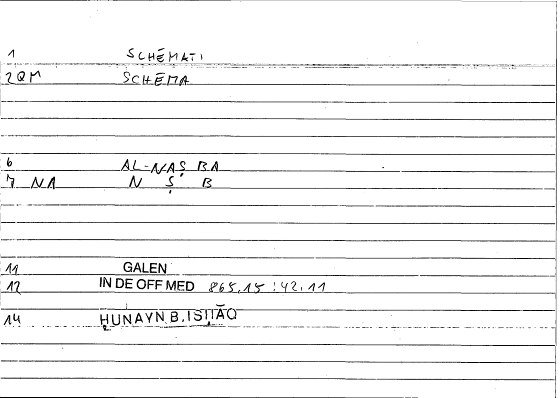 1 SCHĒMATI
2 QM SCHĒMA
6 AL-NAṢBA
7 NA N Ṣ B
11 GALEN
12 IN DE OFF MED 865,15 : 42,11
14 ḤUNAYN B. ISḤĀQ